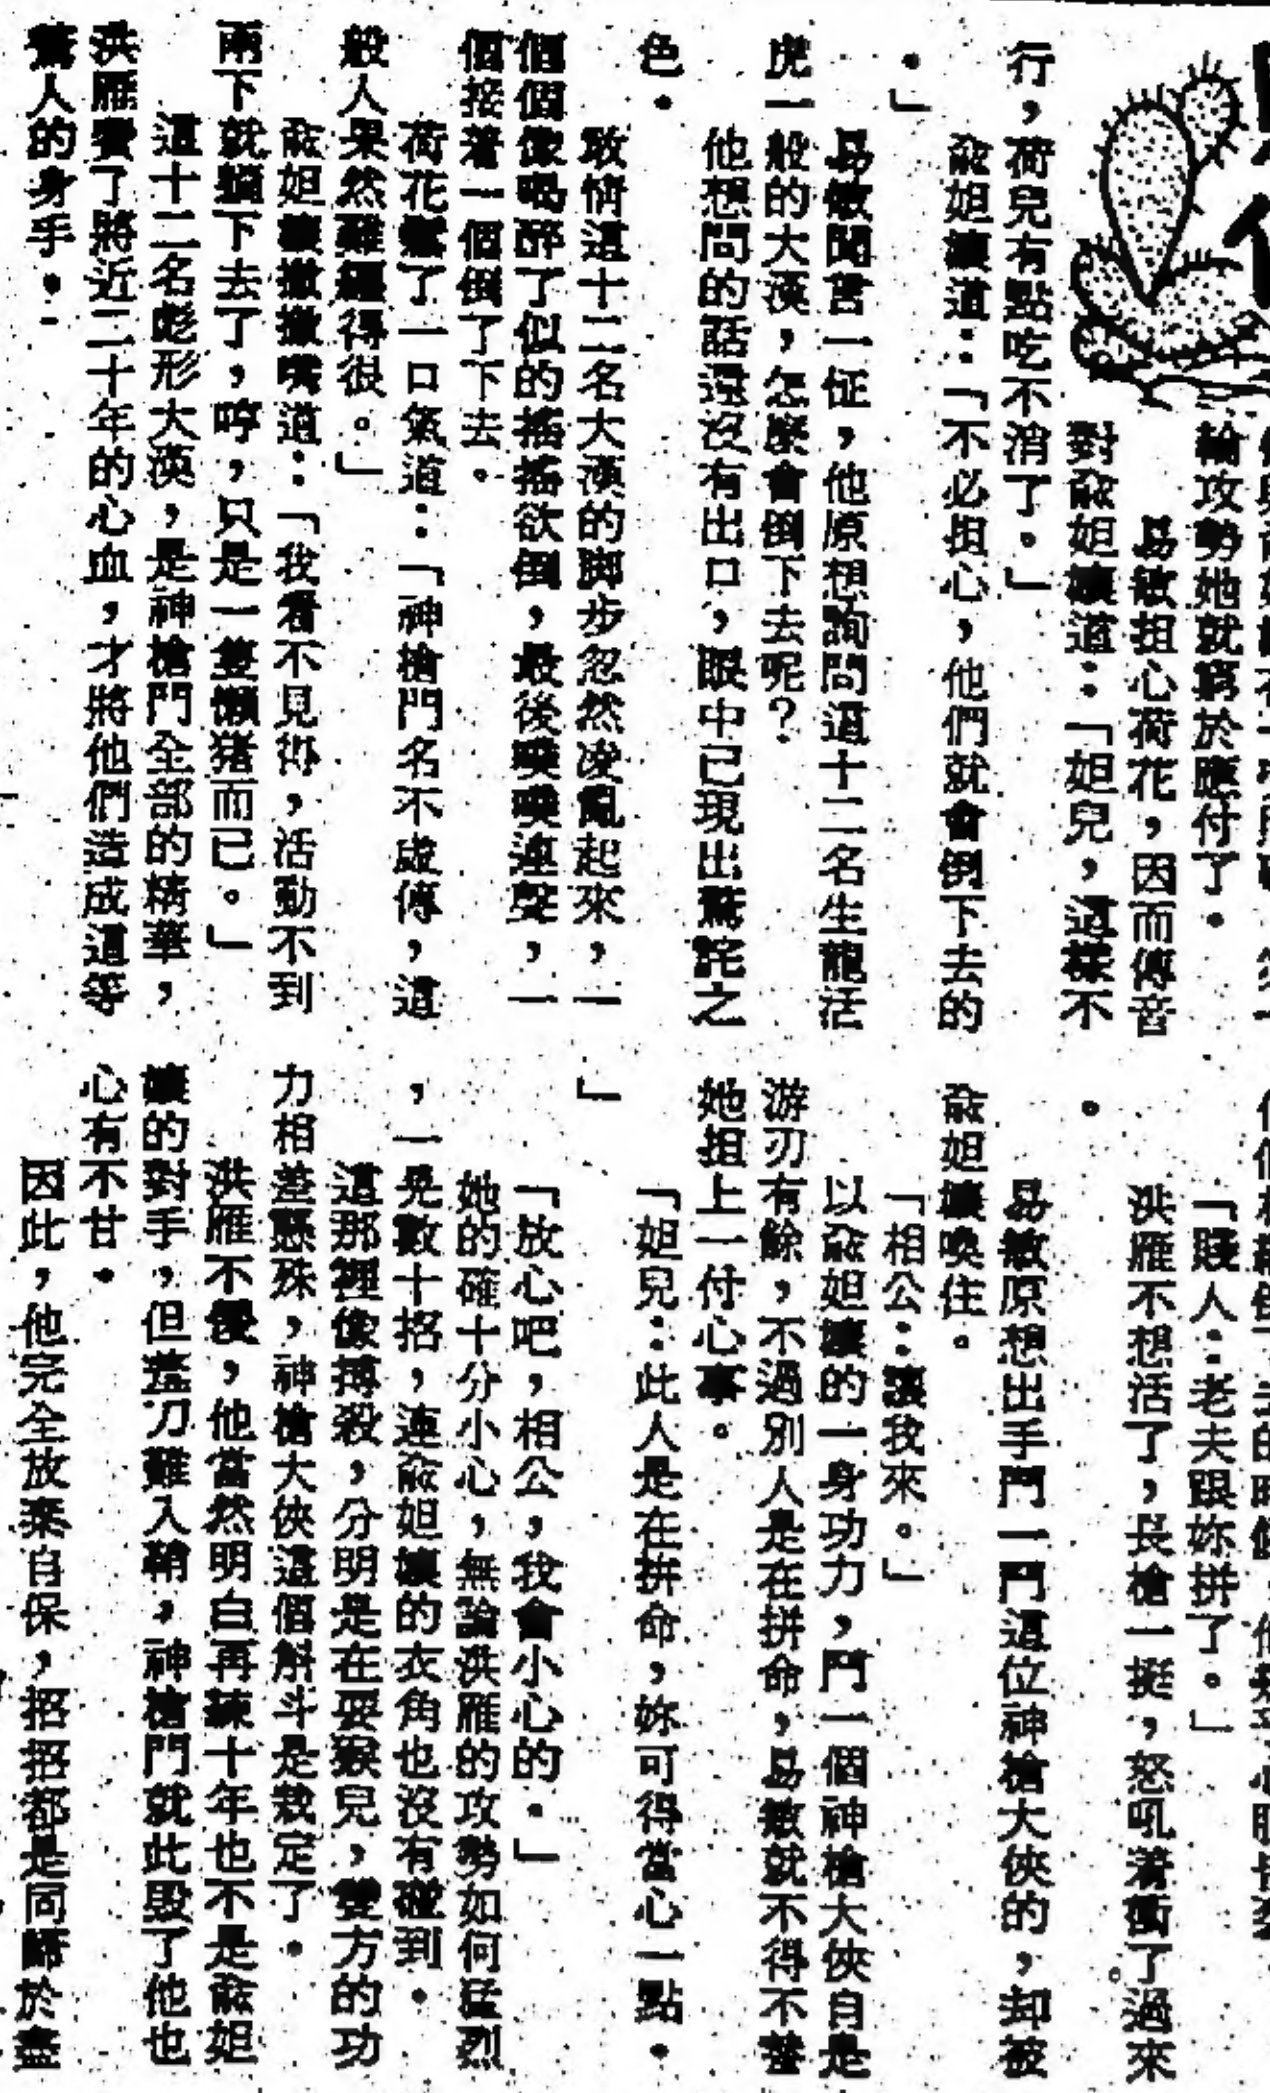 輪攻勢她就窮於應付了。
易敏担心荷花，因而傳音
對兪妲孃道：「妲兒，這樣不
行，荷兒有點吃不消了。」
兪妲孃道：「不必担心，他們就會倒下去的
。」
易敏聞言一怔，他原想詢問這十二名生龍活
虎一般的大漢，怎麼會倒下去呢？
他想問的話還沒有出口，眼中已現出驚詫之
色。
敢情這十二名大漢的脚步忽然凌亂起來，一
個個像喝醉了似的搖搖欲倒，最後噗噗連聲，一
個接着一個倒了下去。
荷花籲了一口氣道：「神槍門名不虛傳，這
般人果然難纏得很。」
兪妲孃撇撇嘴道：「我看不見得，活動不到
兩下就躺下去了，哼，只是一隻懶猪而已。」
這十二名彪形大漢，是神槍門全部的精華，
洪雁費了將近二十年的心血，才將他們造成這等
驚人的身手。
「賤人：老夫跟妳拼了。」
洪雁不想活了，長槍一挺，怒吼着衝了過來
。
易敏原想出手鬥一鬥這位神槍大俠的，却被
兪妲孃喚住。
「相公：讓我來。」
以兪妲孃的一身功力，鬥一個神槍大俠自是
游刃有餘，不過別人是在拼命，易敏就不得不替
她担上一付心事。
「妲兒：此人是在拼命，妳可得當心一點。
」
「放心吧，相公，我會小心的。」
她的確十分小心，無論洪雁的攻勢如何猛烈
，一晃數十招，連兪妲孃的衣角也沒有碰到。
這那裡像搏殺，分明是在耍猴兒，雙方的功
力相差懸殊，神槍大俠這個斛斗是栽定了。
洪雁不優，他當然明白再練十年也不是兪妲
孃的對手，但蓋刀難入鞘，神槍門就此毀了他也
心有不甘。
因此，他完全放棄自保，招招都是同歸於盡